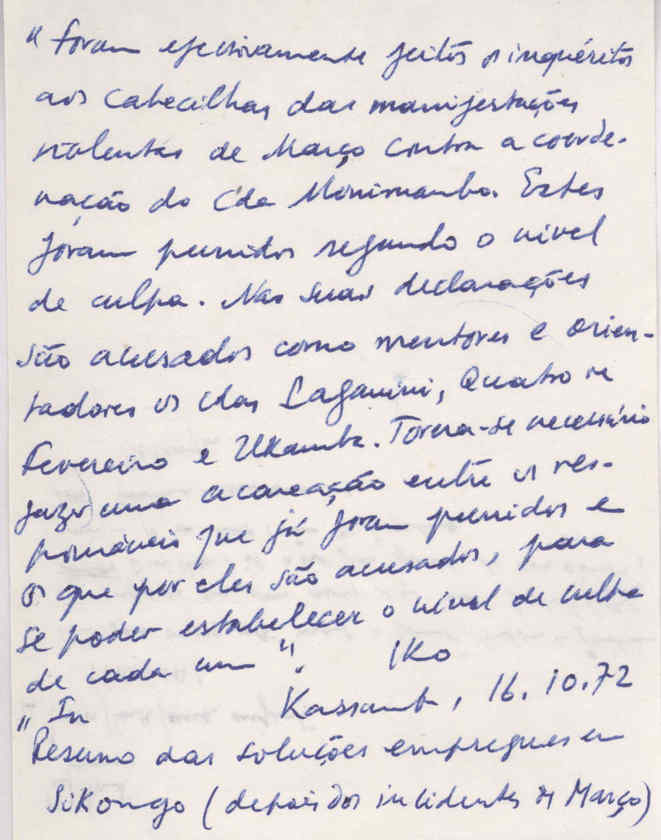 " foram efectivamente feitos os inquéritos
aos cabecilhas das manifestações
violentas de Março contra a coorde-
nação do Cda Monimambo. Estes
foram punidos segundo o nivel
de culpa. Nas suas declarações
são acusados como mentores e orien-
tadores os cdas Laganini, Quatro de
Fevereiro e Ukamba. Torna-se necessário
fazer uma acareação entre os res-
ponsáveis que já foram punidos e
os que por eles são acusados, para
se poder estabelecer o nivel de culpa
de cada um ". IKO
" In Kassamba, 16.10.72
Resumo das soluções empregues em
Sikongo (depois dos incidentes de Março)